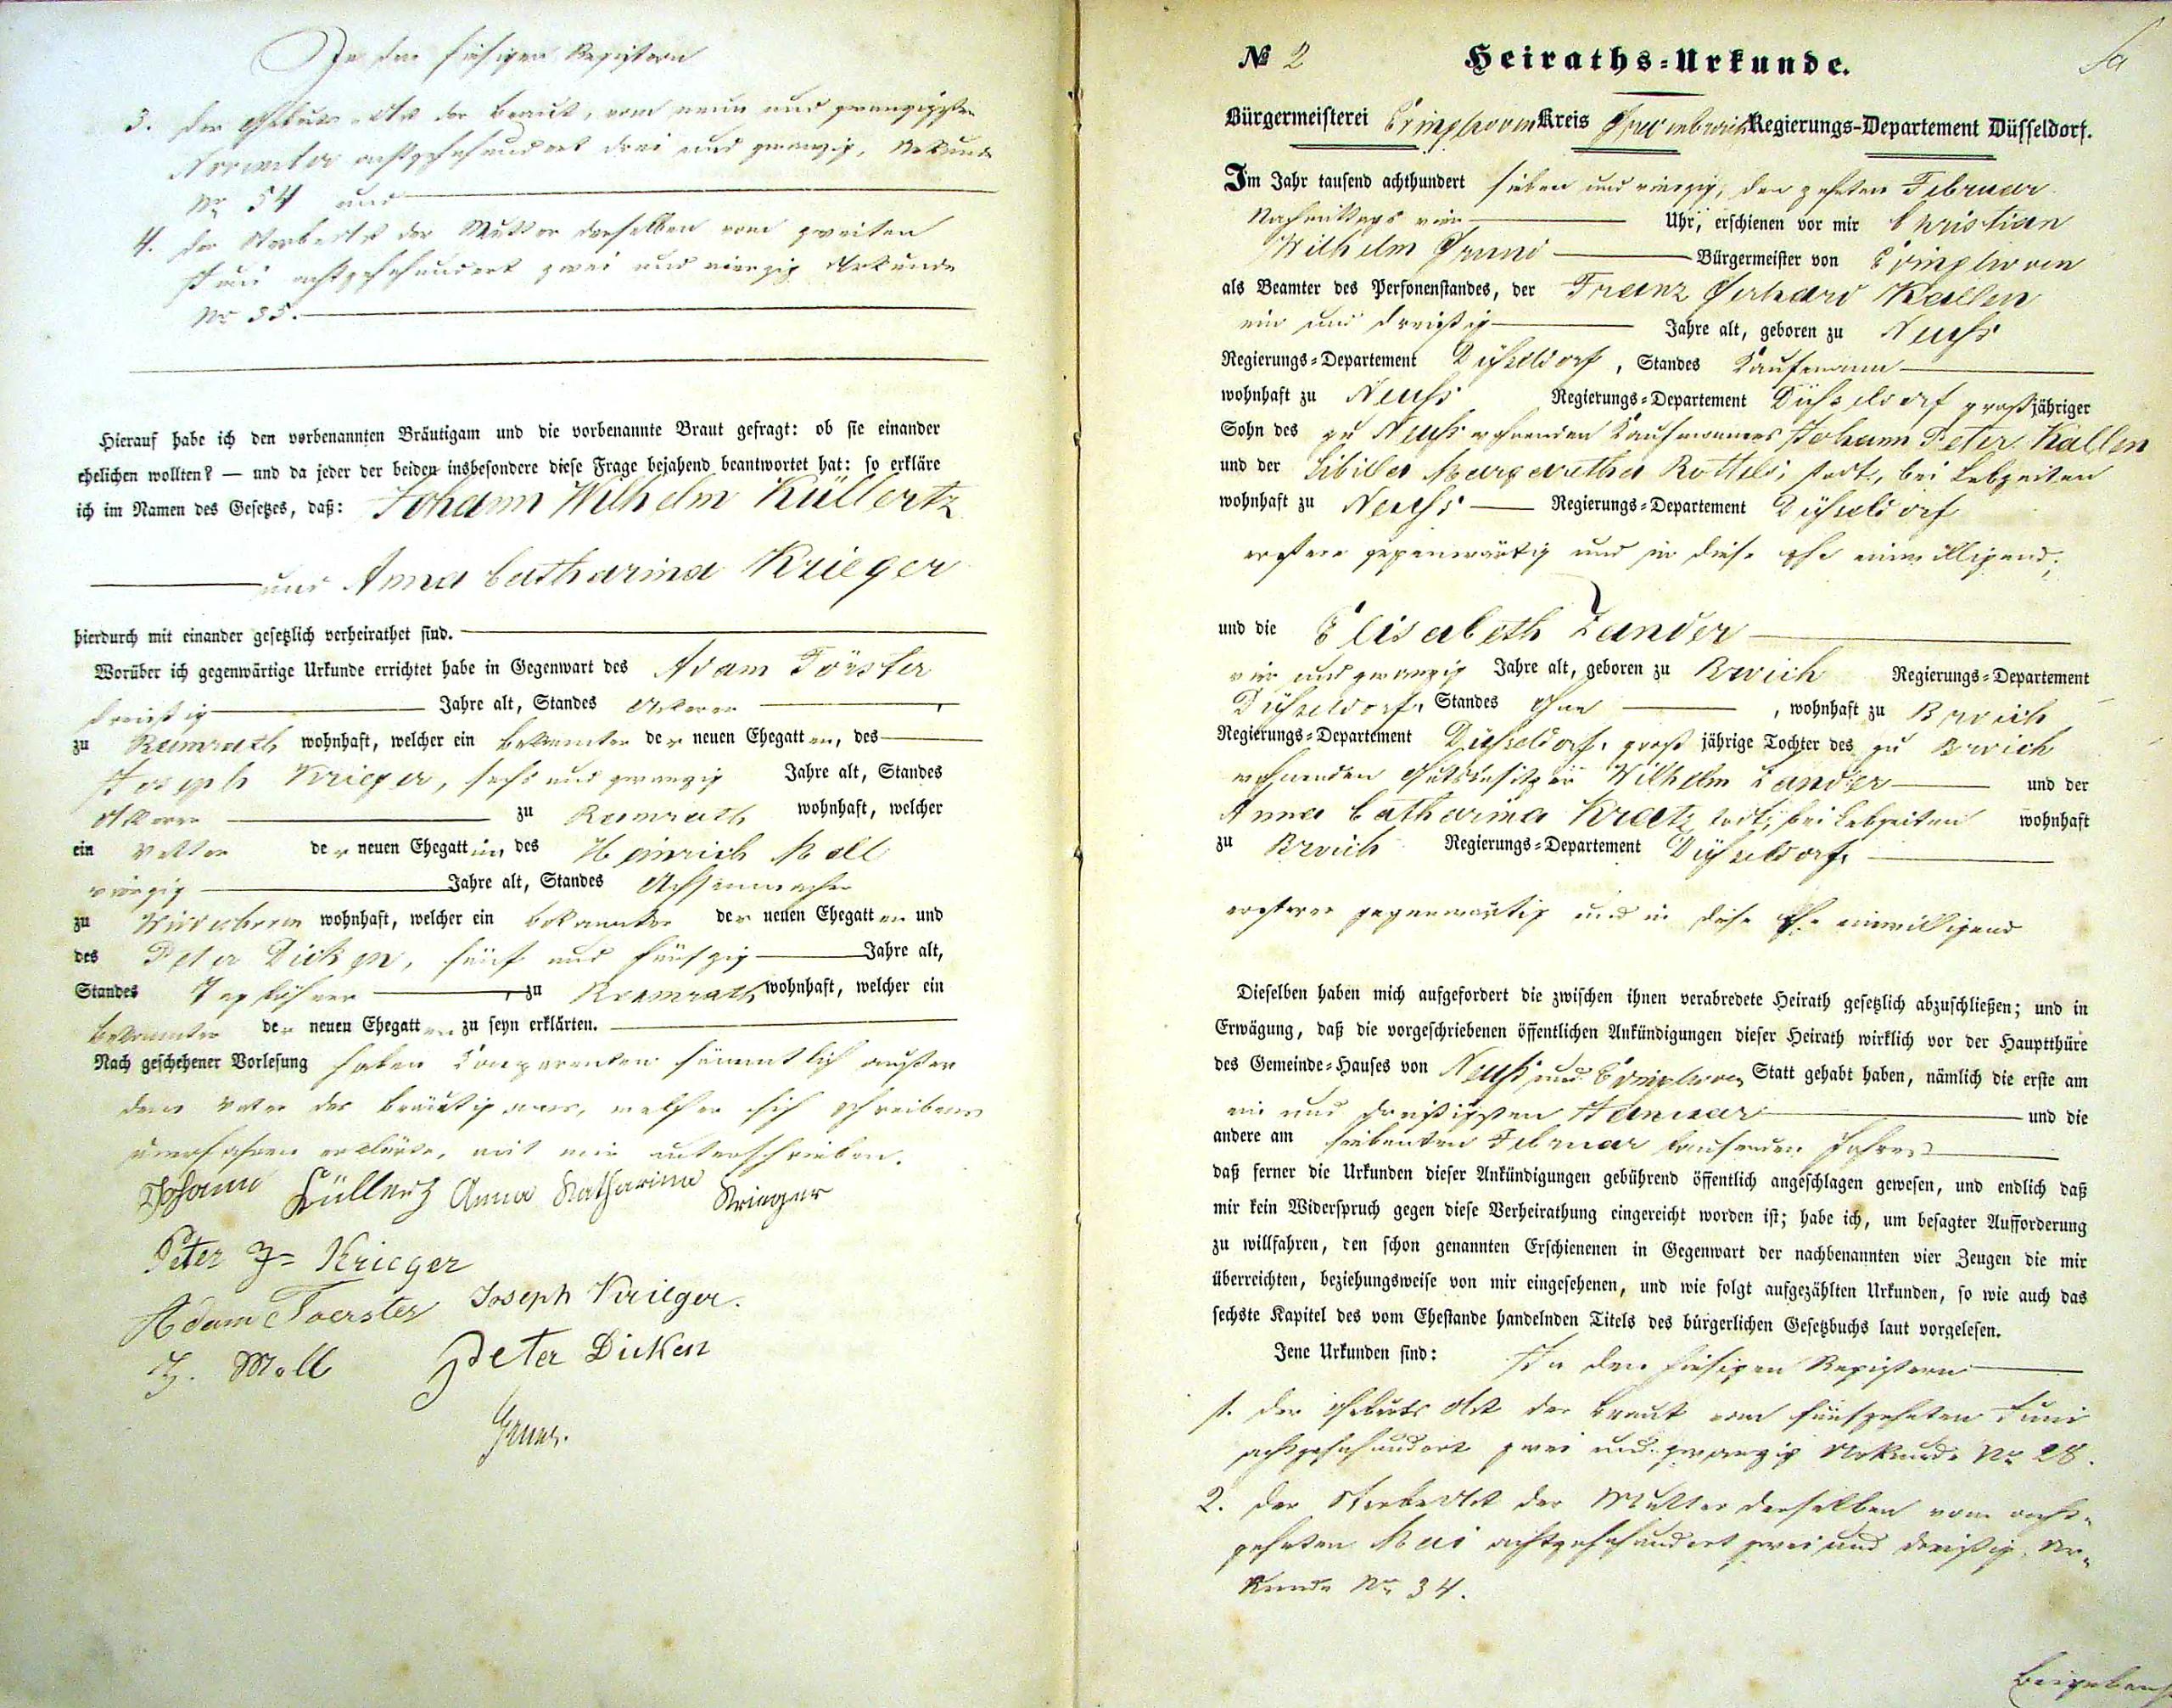 In den hiesigen Registern
3. der Geburts Akt der Braut, vom neun und zwanzigsten
November achtzehnhundert drei und zwanzig, Urkunde
No 54 und
4. der Sterbeakt der Mutter derselben vom zweiten
Juni achtzehnhundert zwei und vierzig Urkunde
No 35.
Hierauf habe ich den vorbenannten Bräutigam und die vorbenannte Braut gefragt: ob sie einander
ehelichen wollten? — und da jeder der beiden insbesondere diese Frage bejahend beantwortet hat: so erkläre
ich im Namen des Gesetzes, daß: Johann Wilhelm Küllertz
und Anna Catharina Krieger
hierdurch mit einander gesetzlich verheirathet sind.
Worüber ich gegenwärtige Urkunde errichtet habe in Gegenwart des Adam Förster
dreißig Jahre alt, Standes Ackerer,
zu Ramrath wohnhaft, welcher ein bekannter der neuen Ehegatten, des
Joseph Krieger, sechs und zwanzig Jahre alt, Standes
Ackerer zu Ramrath wohnhaft, welcher
ein Vetter der neuen Ehegattin, des Heinrich Moll
vierzig Jahre alt, Standes Achsenmacher
zu wohnhaft, welcher ein bekannter der neuen Ehegatten und
des Peter Dicken, fünf und fünfzig Jahre alt,
Standes Taglöhner, zu Ramrath wohnhaft, welcher ein
bekannter der neuen Ehegatten zu seyn erklärten.
Nach geschehener Vorlesung haben Comparenten sämmtlich außer
dem Vater des Bräutigams, welcher sich schreibens
unerfahren erklärte, mit mir unterschrieben.
Johann Küllertz Anna Katharina Krieger
Peter J= Krieger
Adam Foerster Joseph Krieger.
H. Moll Peter Dicken
Grund.
No 2 Heiraths-Urkunde.
Bürgermeisterei Evinghoven Kreis Grevenbroich Regierungs-Departement Düsseldorf.
Im Jahr tausend achthundert sieben und vierzig, den zehnten Februar
Nachmittags vier Uhr, erschienen vor mir Christian
Wilhelm Grund Bürgermeister von Evinghoven
als Beamter des Personenstandes, der Franz Gerhard Kallen
ein und dreißig Jahre alt, geboren zu Neuss
Regierungs-Departement Düsseldorf, Standes Kaufmann
wohnhaft zu Neuss Regierungs-Departement Düsseldorf großjähriger
Sohn des zu Neuss wohnenden Kaufmannes Johann Peter Kallen
und der Sibilla Margaretha Rottels, todt, bei Lebzeiten
wohnhaft zu Neuss Regierungs-Departement Düsseldorf
ersterer gegenwärtig und in diese Ehe einwilligend;
und die Elisabeth Zander
vier und zwanzig Jahre alt, geboren zu Broich Regierungs-Departement
Düsseldorf, Standes ohne, wohnhaft zu Broich
Regierungs-Departement Düsseldorf, groß jährige Tochter des zu Broich
wohnenden Gutsbesitzer Wilhelm Zander und der
Anna Catharina Kratz todt, bei Lebzeiten wohnhaft
zu Broich Regierungs-Departement Düsseldorf,
ersterer gegenwärtig und in diese Ehe einwilligend
Dieselben haben mich aufgefordert die zwischen ihnen verabredete Heirath gesetzlich abzuschließen; und in
Erwägung, daß die vorgeschriebenen öffentlichen Ankündigungen dieser Heirath wirklich vor der Hauptthüre
des Gemeinde-Hauses von Neuss und Evinghoven Statt gehabt haben, nämlich die erste am
ein und dreißigsten Januar und die
andere am siebenten Februar laufenden Jahres
daß ferner die Urkunden dieser Ankündigungen gebührend öffentlich angeschlagen gewesen, und endlich daß
mir kein Widerspruch gegen diese Verheirathung eingereicht worden ist; habe ich, um besagter Aufforderung
zu willfahren, den schon genannten Erschienenen in Gegenwart der nachbenannten vier Zeugen die mir
überreichten, beziehungsweise von mir eingesehenen, und wie folgt aufgezählten Urkunden, so wie auch das
sechste Kapitel des vom Ehestande handelnden Titels des bürgerlichen Gesetzbuchs laut vorgelesen.
Jene Urkunden sind: In den hiesigen Registern
1. der Geburts Akt der Braut vom fünfzehnten Juni
achtzehnhundert zwei und zwanzig Urkunde No 28.
2. der Sterbeakt der Mutter derselben vom acht-
zehnten Mai achtzehnhundert zwei und dreißig, Ur-
kunde No 34.